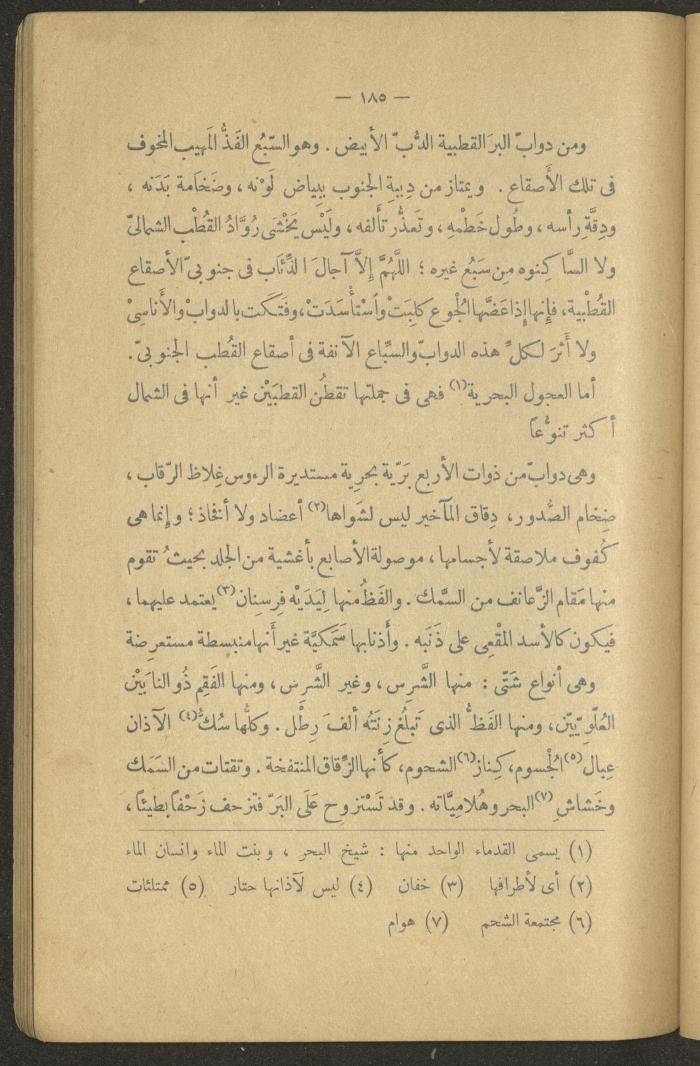 — ١٨٥ —
ومن دوابّ البرَ القطبية الدُّبّ الأبيض . وهو السّبُع الفَذُّ المَهيب المخوف
فى تلك الأَصقاع . ويمتاز من دِببةِ الجنوب ببياض لَوْنه ، وضَخامة بَدَنه ،
ودِقَّةِ رأسه ، وطُول خَطْمهِ ، وتَعذُّر تألفه ، ولَيْس يَخْشَى رُوَّادُ القُطْب الشمالىّ
ولا السَّاكنوه مِن سَبُع غيره ؛ اللَّهُمَّ إلاَّ آجالَ الذِّئاب فى جنوبىّ الأصقاع
القُطْبية ، فإِنها إذا عَضَّها الجُوع كَلِبَتْ واُسْتَأْسَدَتْ ، وفَتَكَت بالدوابْ والأَناسِىْ
ولا أَثرَ لكلِّ هذه الدوابّ والسِّباع الآنفة فى أصقاع القُطب الجنوبىّ .
أما العجول البحرية (١) فهى فى جملتها تقطُن القطبَيْن غير أنها فى الشمال
أكثر تنوُّعاً
وهى دوابّ من ذوات الأربع بَرّية بحرِية مستديرة الرءوس غِلاظ الرّقاب ،
ضِخام الصُّدور ، دِقاق المآخير ليس لشَواها (٢) أعضاد ولا أفخاذ ؛ وإنما هى
كُفوف ملاصقة لأجسامها ، موصولة الأصابع بأغشية من الجلد بحيثُ تقوم
منها مَقام الزَّعانف من السَّمك . والفَظُّ منها لِيَدَيْه فِرسِنان (٣) يعتمد عليهما ،
فيكون كالأسد المقْعِى على ذَنَبه . وأذنابها سَمَكيَّة غير أَنها منبسطة مستعرضة
وهى أنواع شَتَّى : منها الشَّرِس ، وغير الشَّرِس ، ومنها الفَقِم ذُو النابَيْن
العُلْوِيّيْن ، ومنها الفَظُّ الذى تَبلُغ زِنَتُه ألفَ رِطْل . وكلُّها سُكُّ (٤) الآذان
عِبال (٥) الجُسوم ، كِناز (٦) الشحوم ، كأنها الزِّقاق المنتفخة . وتقتات من السَمَك
وخَشاشِ (٧) البحر وهُلامِيَّاته . وقد تَسْتَروِح عَلَى البَرّ فتزحف زَحْفاً بطيئاً ،
(١) يسمى القدماء الواحد منها : شيخ البحر ، وبنت الماء وانسان الماء
(٢) أى لأطرافها (٣) خفان (٤) ليس لآذانها حتار (٥) ممتلئات
(٦) مجتمعة الشحم (٧) هوام